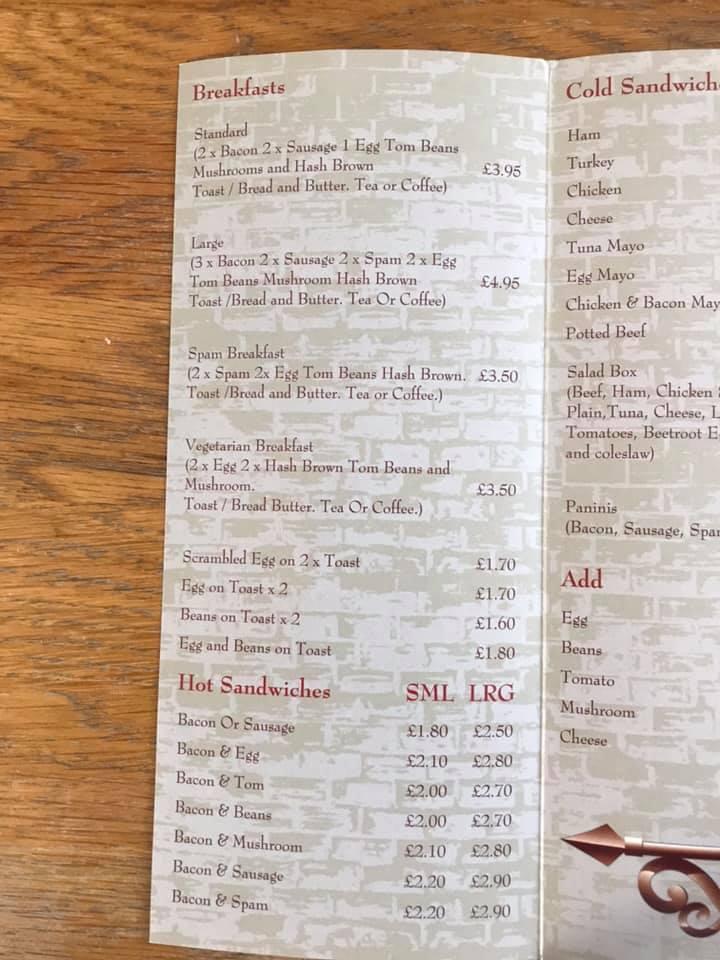 Breakfasts
Standard
(2 x Bacon 2 x Sausage 1 Egg Tom Beans
Mushrooms and Hash Brown £3.95
Toast / Bread and Butter. Tea or Coffee)
Large
(3 x Bacon 2 x Sausage 2 x Spam 2 x Egg
Tom Beans Mushroom Hash Brown £4.95
Toast /Bread and Butter. Tea Or Coffee)
Spam Breakfast
(2 x Spam 2x Egg Tom Beans Hash Brown. £3.50
Toast /Bread and Butter. Tea or Coffee.)
Vegetarian Breakfast
(2 x Egg 2 x Hash Brown Tom Beans and
Mushroom. £3.50
Toast / Bread Butter. Tea Or Coffee.)
Scrambled Egg on 2 x Toast £1.70
Egg on Toast x 2 £1.70
Beans on Toast x 2 £1.60
Egg and Beans on Toast £1.80
Hot Sandwiches SML LRG
Bacon Or Sausage £1.80 £2.50
Bacon & Egg £2.10 £2.80
Bacon & Tom £2.00 £2.70
Bacon & Beans £2.00 £2.70
Bacon & Mushroom £2.10 £2.80
Bacon & Sausage £2.20 £2.90
Bacon & Spam £2.20 £2.90
Cold Sandwich
Ham
Turkey
Chicken
Cheese
Tuna Mayo
Egg Mayo
Chicken & Bacon May
Potted Beef
Salad Box
(Beef, Ham, Chicken
Plain,Tuna, Cheese, L
Tomatoes, Beetroot E
and coleslaw)
Paninis
(Bacon, Sausage, Spa
Add
Egg
Beans
Tomato
Mushroom
Cheese